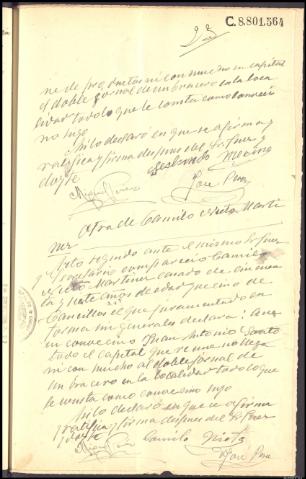 C.8.801.564
23
ne de productos ni con mucho en capital
el doble jornal de un bracero en la loca
lidad todo lo que le consta como convecino
no suyo
Asi lo declaró en que se afirma y
ratifica y firma despues del Sr Juez y
doy fe
Deslerendo
Jose
Otra de Camilo Nieto Marti
nez
Acto seguido ante el mismo Sr Juez
y Secretario compareció Camilo
Nieto Martinez casado de cincuenta
ta y siete años de edad y vecino de
Cancillos el que juramentado en
forma sin generales declara: que
su convecino Juan Antonio
todo el capital que reune no llega
ni con mucho al doble jornal de
un bracero en la localidad todo lo que
le consta como convecino suyo
Asi lo declaró en que se afirma
ratifica y firma despues del Sr Juez
y doy fe
Camilo Nieto
Jose